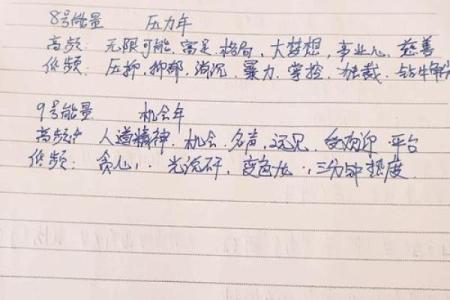 8号能量 压力年
高频: 无限可能, 富足, 格局, 大梦想, 事业心, 慈善
低频: 压抑, 抑郁, 消沉, 暴力, 掌控, 独裁, 钻牛
9号能量 机会年
高频: 人道精神, 机会, 名声, 远见, 受欢迎, 平台
低频: 贪心, 光说不, 三分钟热度.